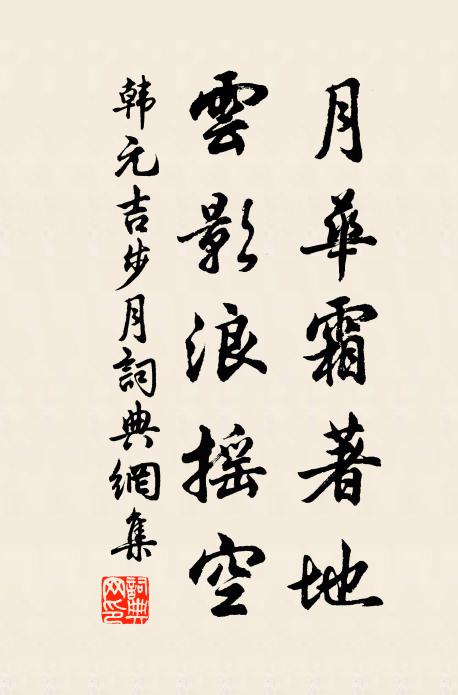 月華霜著地
雲影浪摇空
韩元吉步月詞典網集
詞典网印